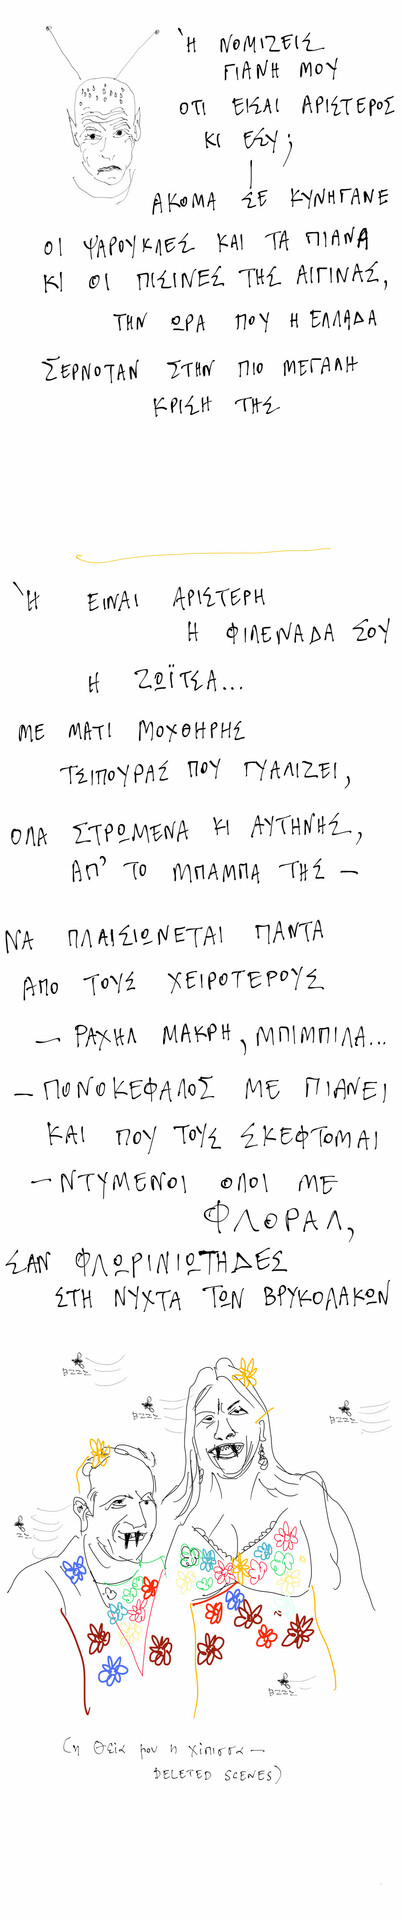 Ή ΝΟΜΙΖΕΙΣ
ΓΙΑΝΗ ΜΟΥ
ΟΤΙ ΕΙΣΑΙ ΑΡΙΣΤΕΡΟΣ
ΚΙ ΕΣΥ;
ΑΚΟΜΑ ΣΕ ΚΥΝΗΓΑΝΕ
ΟΙ ΨΑΡΟΥΚΛΕΣ ΚΑΙ ΤΑ ΠΙΑΝΑ
ΚΙ ΟΙ ΠΙΣΙΝΕΣ ΤΗΣ ΑΙΓΙΝΑΣ,
ΤΗΝ ΩΡΑ ΠΟΥ Η ΕΛΛΑΔΑ
ΣΕΡΝΟΤΑΝ ΣΤΗΝ ΠΙΟ ΜΕΓΑΛΗ
ΚΡΙΣΗ ΤΗΣ
Ή ΕΙΝΑΙ ΑΡΙΣΤΕΡΗ
Η ΦΙΛΕΝΑΔΑ ΣΟΥ
Η ΖΩΪΤΣΑ...
ΜΕ ΜΑΤΙ ΜΟΧΘΗΡΗΣ
ΤΣΙΠΟΥΡΑΣ ΠΟΥ ΓΥΑΛΙΖΕΙ,
ΟΛΑ ΣΤΡΩΜΕΝΑ ΚΙ ΑΥΤΗΝΗΣ,
ΑΠ' ΤΟ ΜΠΑΜΠΑ ΤΗΣ —
ΝΑ ΠΛΑΙΣΙΩΝΕΤΑΙ ΠΑΝΤΑ
ΑΠΟ ΤΟΥΣ ΧΕΙΡΟΤΕΡΟΥΣ
— ΡΑΧΗΛ ΜΑΚΡΗ, ΜΠΙΜΠΙΛΑ...
— ΠΟΝΟΚΕΦΑΛΟΣ ΜΕ ΠΙΑΝΕΙ
ΚΑΙ ΠΟΥ ΤΟΥΣ ΣΚΕΦΤΟΜΑΙ
— ΝΤΥΜΕΝΟΙ ΟΛΟΙ ΜΕ
ΦΛΟΡΑΛ,
ΣΑΝ ΦΛΩΡΙΝΙΩΤΗΔΕΣ
ΣΤΗ ΝΥΧΤΑ ΤΩΝ ΒΡΥΚΟΛΑΚΩΝ
BZZZ
BZZZ
BZZZ
ZZ
BZZZ
(η θεία μου η χίπισσα —
DELETED SCENES)